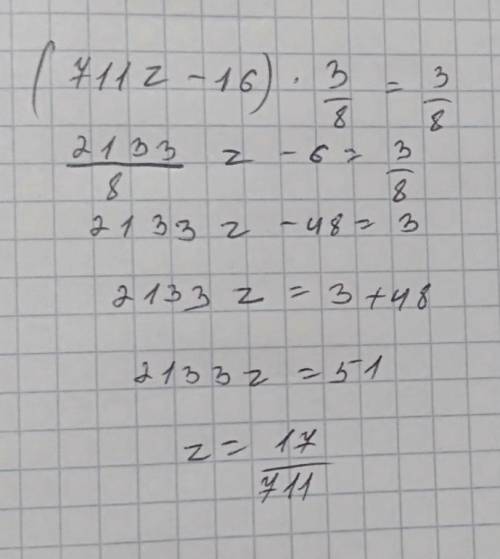 (711z - 16) · 3/8 = 3/8
2133/8 z - 6 = 3/8
2133z - 48 = 3
2133z = 3 + 48
2133z = 51
z = 17/711